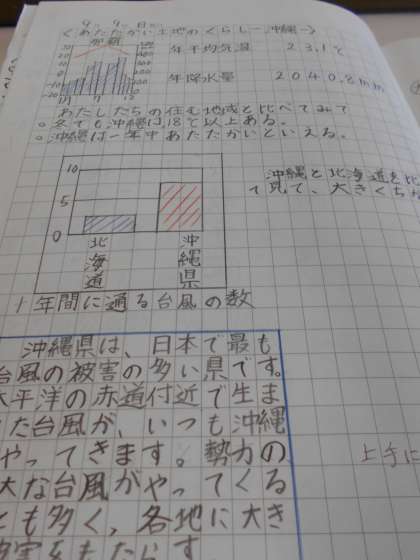 9、9、日
〈あたたかい土地のくらしー沖縄ー〉
那覇
年平均気温 23.1℃
年降水量 2040.8mm
わたしたちの住む地域と比べてみて
○冬でも沖縄は18℃以上ある。
○沖縄は一年中あたたかいといえる。
10
5
0
北海道
沖縄県
沖縄と北海道を比
て見て、大きくちが
十年間に通る台風の数
沖縄県は、日本で最も
台風の被害の多い県です。
太平洋の赤道付近で生ま
た台風が、いつも沖縄
やってきます。勢力の
大な台風がやってくる
とも多く、各地に大き
被害をもたらす
上手に